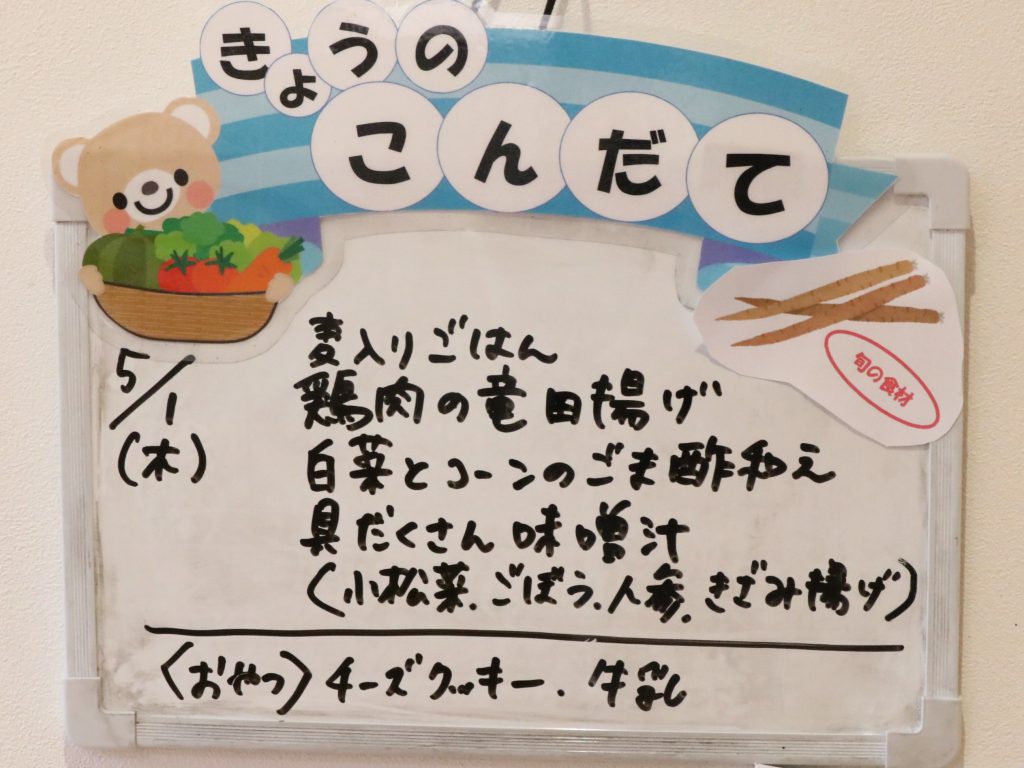 きょうの
こんだて
旬の食材
5/1
(木)
麦入りごはん
鶏肉の竜田揚げ
白菜とコーンのごま酢和え
具だくさん味噌汁
(小松菜、ごぼう、人参、きざみ揚げ)
〈おやつ〉チーズクッキー、牛乳